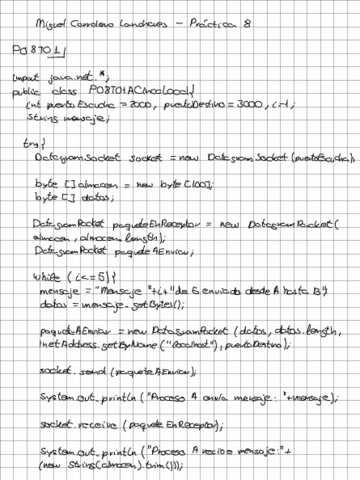 Miguel Carralero Landraes - Práctica 8
P08701
Import java.net.*;
public class P08701ACModLocal{
int puertoEscucha = 2000, puertoDestino = 3000, i=1;
String mensaje;
try{
DatagramSocket socket = new DatagramSocket(puertoEscucha);
byte [] almacen = new byte[100];
byte [] datos;
DatagramPacket paqueteEnReceptor = new DatagramPacket(
almacen, almacen.length);
DatagramPacket paqueteAEnviar;
while (i <= 5){
mensaje = "Mensaje "+i+" de 5 enviado desde A hasta B";
datos = mensaje.getBytes();
paqueteAEnviar = new DatagramPacket (datos, datos.length,
InetAddress.getByName ("localhost"), puertoDestino);
socket.send (paqueteAEnviar);
System.out.println ("Proceso A envia mensaje: "+mensaje);
socket.receive (paqueteEnReceptor);
System.out.println ("Proceso A recibe mensaje: "+
(new String(almacen).trim()));